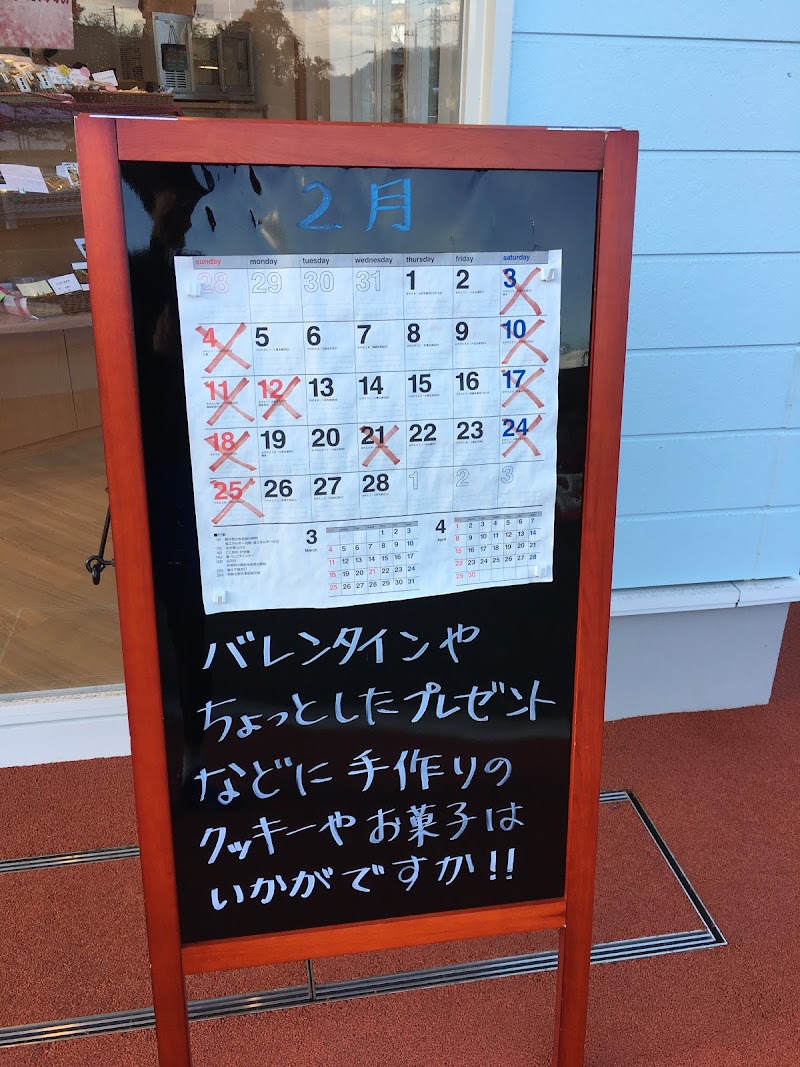 2月
sunday monday tuesday wednesday thursday friday saturday
28 29 30 31 1 2 3
4 5 6 7 8 9 10
11 12 13 14 15 16 17
18 19 20 21 22 23 24
25 26 27 28 1 2 3
3 March
1 2 3
4 5 6 7 8 9 10
11 12 13 14 15 16 17
18 19 20 21 22 23 24
25 26 27 28 29 30 31
4 April
1 2 3 4 5 6 7
8 9 10 11 12 13 14
15 16 17 18 19 20 21
22 23 24 25 26 27 28
29 30
バレンタインや
ちょっとしたプレゼント
などに手作りの
クッキーやお菓子は
いかがですか!!